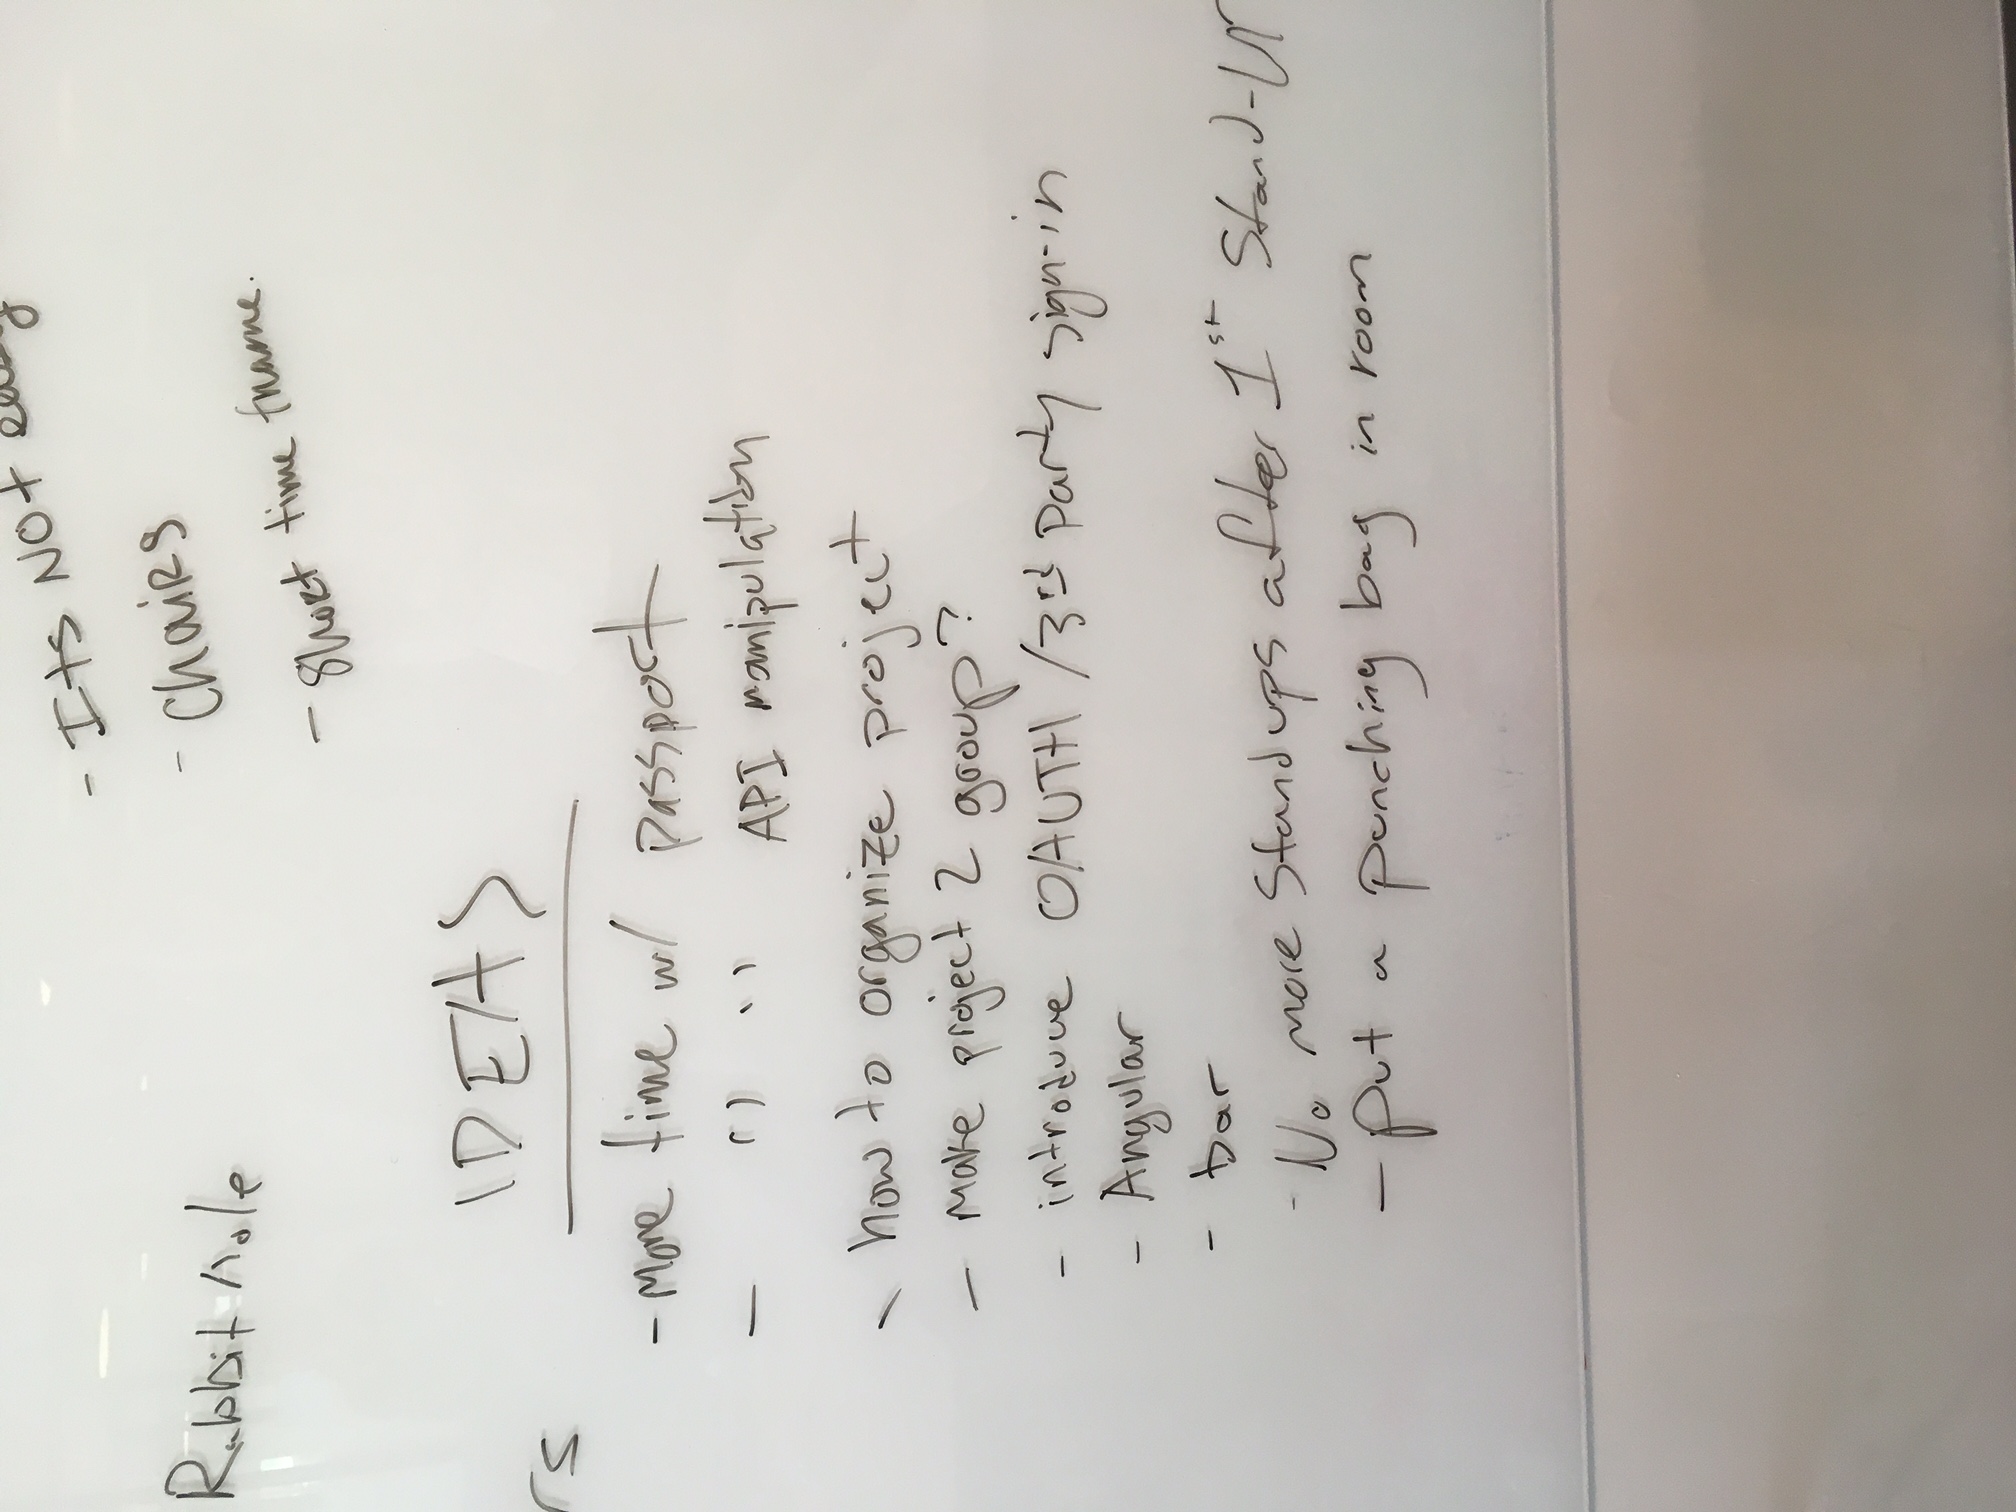 - Its NOT easy
- Chairs
- Short time frame.
Rabbit hole
rs
IDEAS
- More time w/ passport
- " " API manipulation
- how to organize project
- Make project 2 group?
- introduce OAUTH /3rd party sign-in
- Angular
- bar
- No more Standups after 1st Stand-Up
- Put a punching bag in room